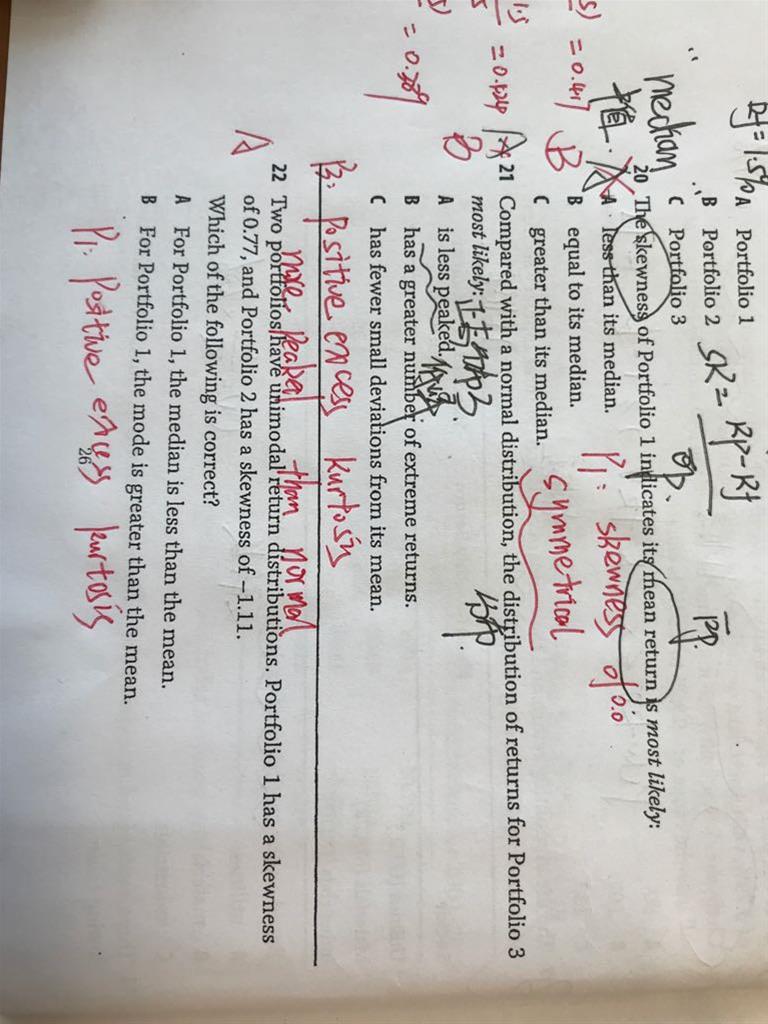 Rf = 1.5%
A Portfolio 1
B Portfolio 2
C Portfolio 3
SR = Rp - Rf
σp.
median
20 The skewness of Portfolio 1 indicates its mean return is most likely:
A less than its median.
B equal to its median.
C greater than its median.
P1: skewness of 0.0
symmetrical
= 0.417
B
21 Compared with a normal distribution, the distribution of returns for Portfolio 3
most likely:
A is less peaked.
B has a greater number of extreme returns.
C has fewer small deviations from its mean.
B
B: positive excess kurtosis
more peaked than normal
22 Two portfolios have unimodal return distributions. Portfolio 1 has a skewness
of 0.77, and Portfolio 2 has a skewness of –1.11.
Which of the following is correct?
A For Portfolio 1, the median is less than the mean.
B For Portfolio 1, the mode is greater than the mean.
A
P1: Positive excess kurtosis
26